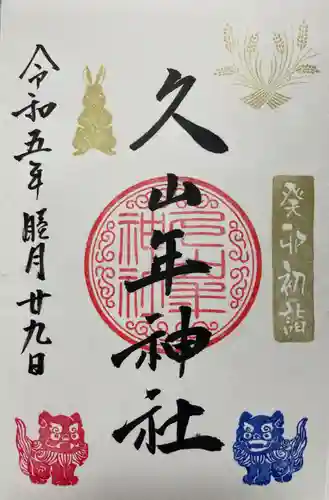 癸卯初詣
久山年神社
久山年神社
令和五年 睦月廿九日